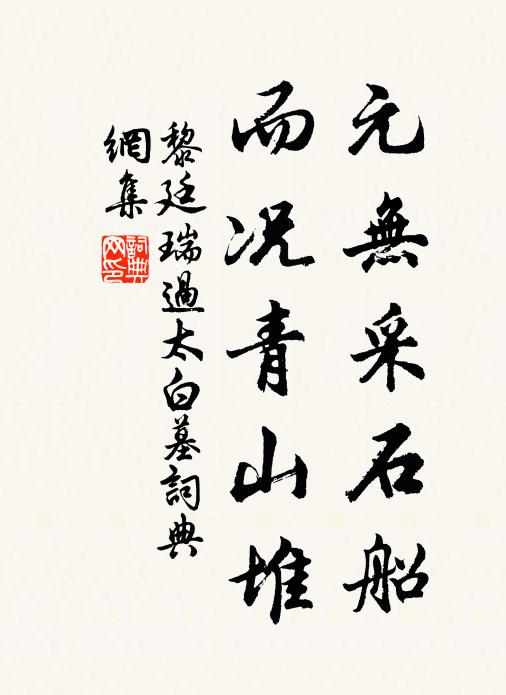 元無采石船
而况青山堆
黎廷瑞過太白墓詞典
網集
詞典
网印